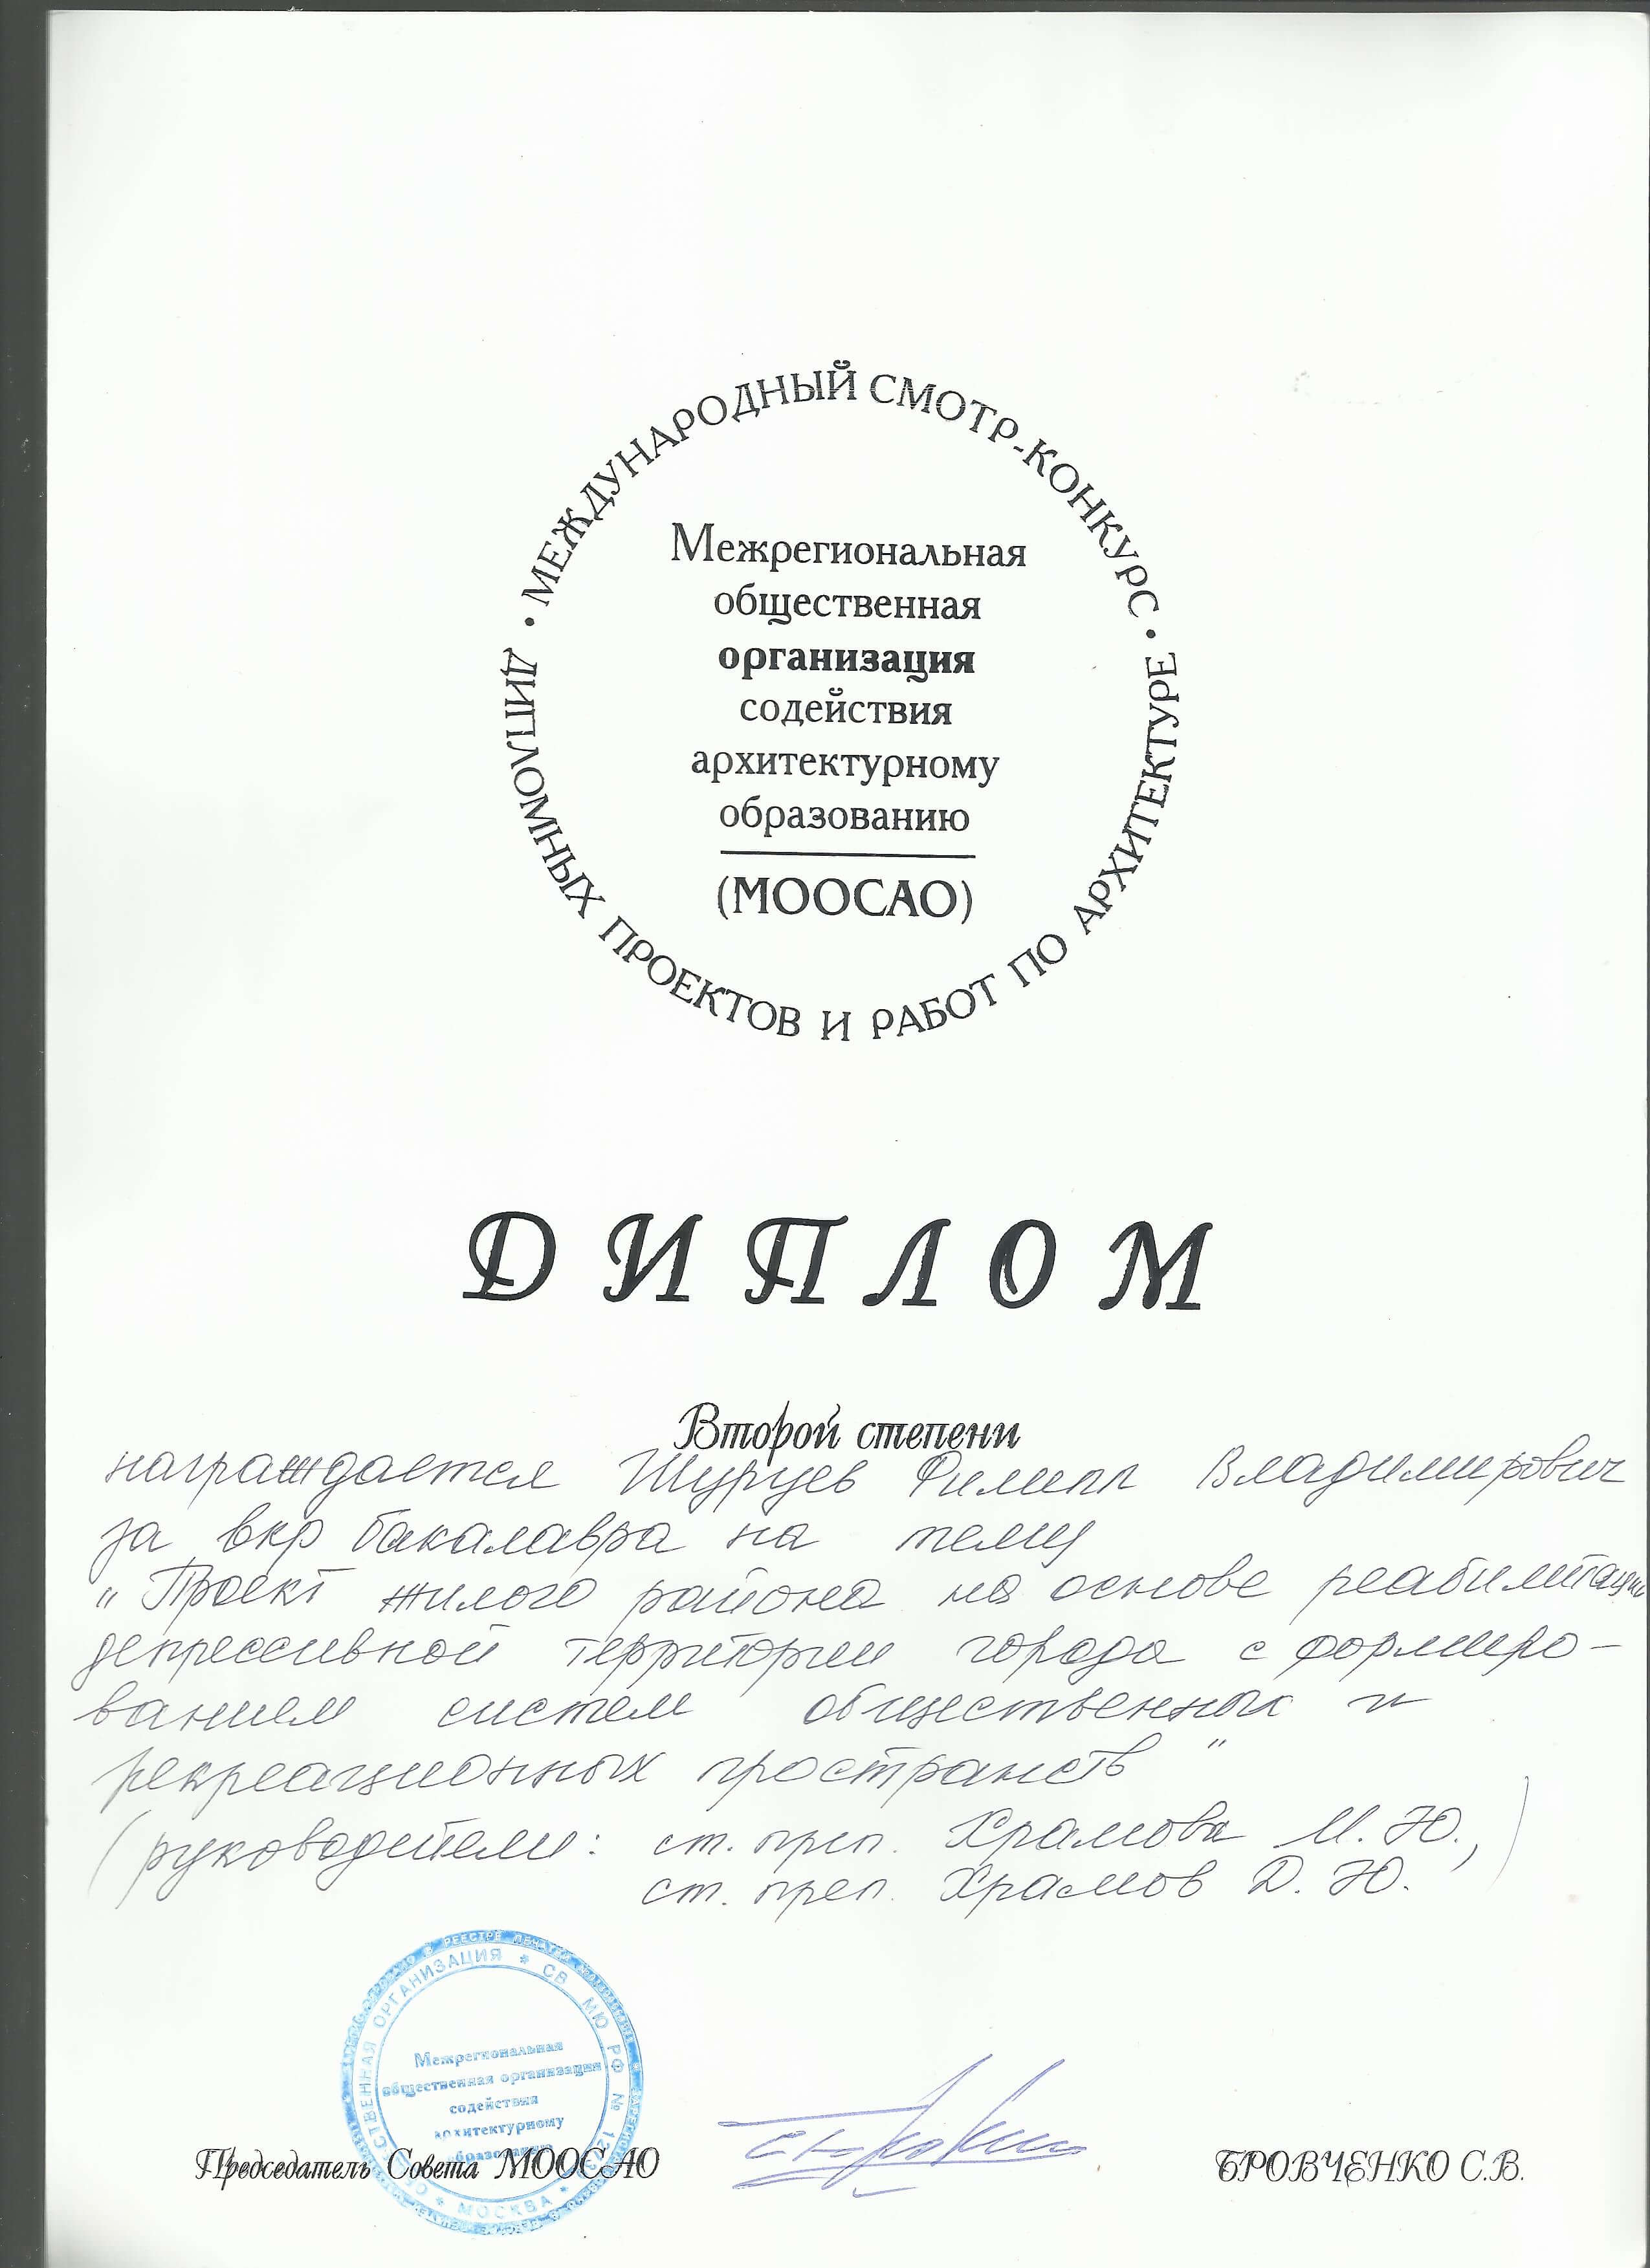 • МЕЖДУНАРОДНЫЙ СМОТР-КОНКУРС •
ДИПЛОМНЫХ ПРОЕКТОВ И РАБОТ ПО АРХИТЕКТУРЕ
Межрегиональная
общественная
организация
содействия
архитектурному
образованию
(МООСАО)
ДИПЛОМ
Второй степени
награждается Шуруев Филипп Владимирович
за вкр бакалавра на тему
"Проект жилого района на основе реабилитации
депрессивной территории города с формиро-
ванием систем общественных и
рекреационных пространств"
(руководители: ст. преп. Храмова М. Ю.,)
ст. преп. Храмов Д. Ю.
В РЕЕСТРЕ ПЕЧАТЕЙ
ОРГАНИЗАЦИЯ * СВ МЮ РФ №
* МОСКВА *
Межрегиональная
общественная организация
содействия
архитектурному
Председатель Совета МООСАО
БРОВЧЕНКО С.В.